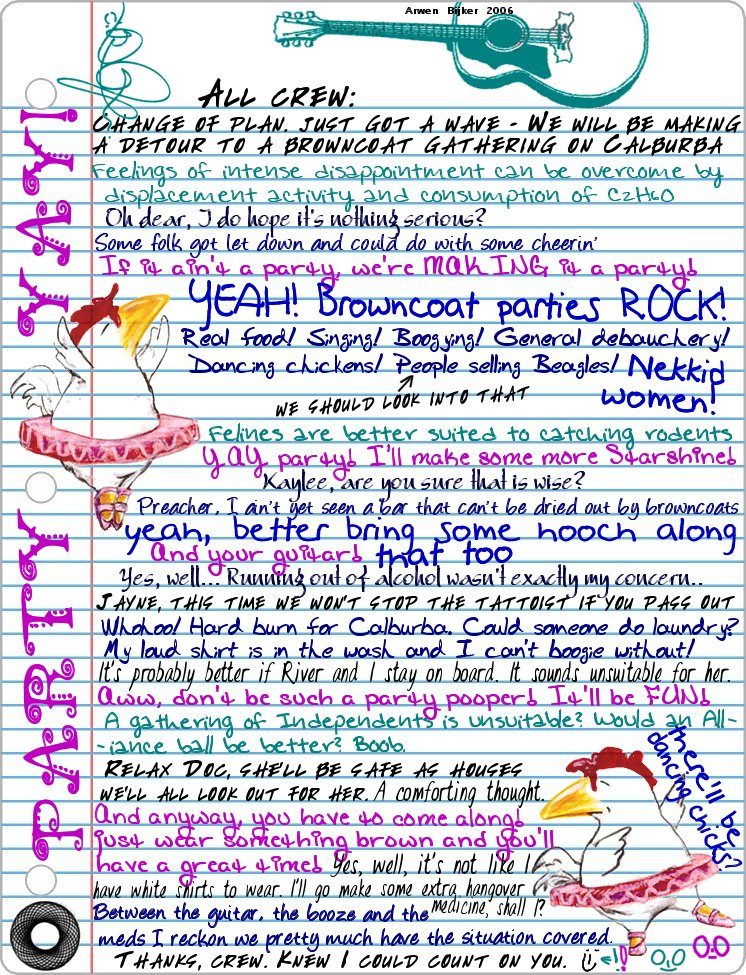 Arwen Bijker 2006
ALL CREW:
CHANGE OF PLAN. JUST GOT A WAVE - WE WILL BE MAKING
A DETOUR TO A BROWNCOAT GATHERING ON CALBURBA
Feelings of intense disappointment can be overcome by
displacement activity and consumption of C2H6O
Oh dear, I do hope it's nothing serious?
Some folk got let down and could do with some cheerin'
If it ain't a party, we're MAKING it a party!
YEAH! Browncoat parties ROCK!
Real food! Singing! Boogying! General debauchery!
Dancing chickens! People selling Beagles! Nekkid
women!
WE SHOULD LOOK INTO THAT
Felines are better suited to catching rodents
YAY party! I'll make some more Starshine!
Kaylee, are you sure that is wise?
Preacher, I ain't yet seen a bar that can't be dried out by browncoats
yeah, better bring some hooch along
And your guitar! that too
Yes, well... Running out of alcohol wasn't exactly my concern..
JAYNE, THIS TIME WE WON'T STOP THE TATTOIST IF YOU PASS OUT
Whohoo! Hard burn for Calburba. Could someone do laundry?
My loud shirt is in the wash and I can't boogie without!
It's probably better if River and I stay on board. It sounds unsuitable for her.
Aww, don't be such a party pooper! It'll be FUN!
A gathering of Independents is unsuitable? Would an All-
-iance ball be better? Boob.
RELAX DOC, SHE'LL BE SAFE AS HOUSES
WE'LL ALL LOOK OUT FOR HER. A comforting thought.
And anyway, you have to come along!
just wear something brown and you'll
have a great time! Yes, well, it's not like I
have white shirts to wear. I'll go make some extra hangover
medicine, shall I?
Between the guitar, the booze and the
meds I reckon we pretty much have the situation covered.
THANKS, CREW. KNEW I COULD COUNT ON YOU.
there'll be
dancing chicks?
YAY!
PARTY